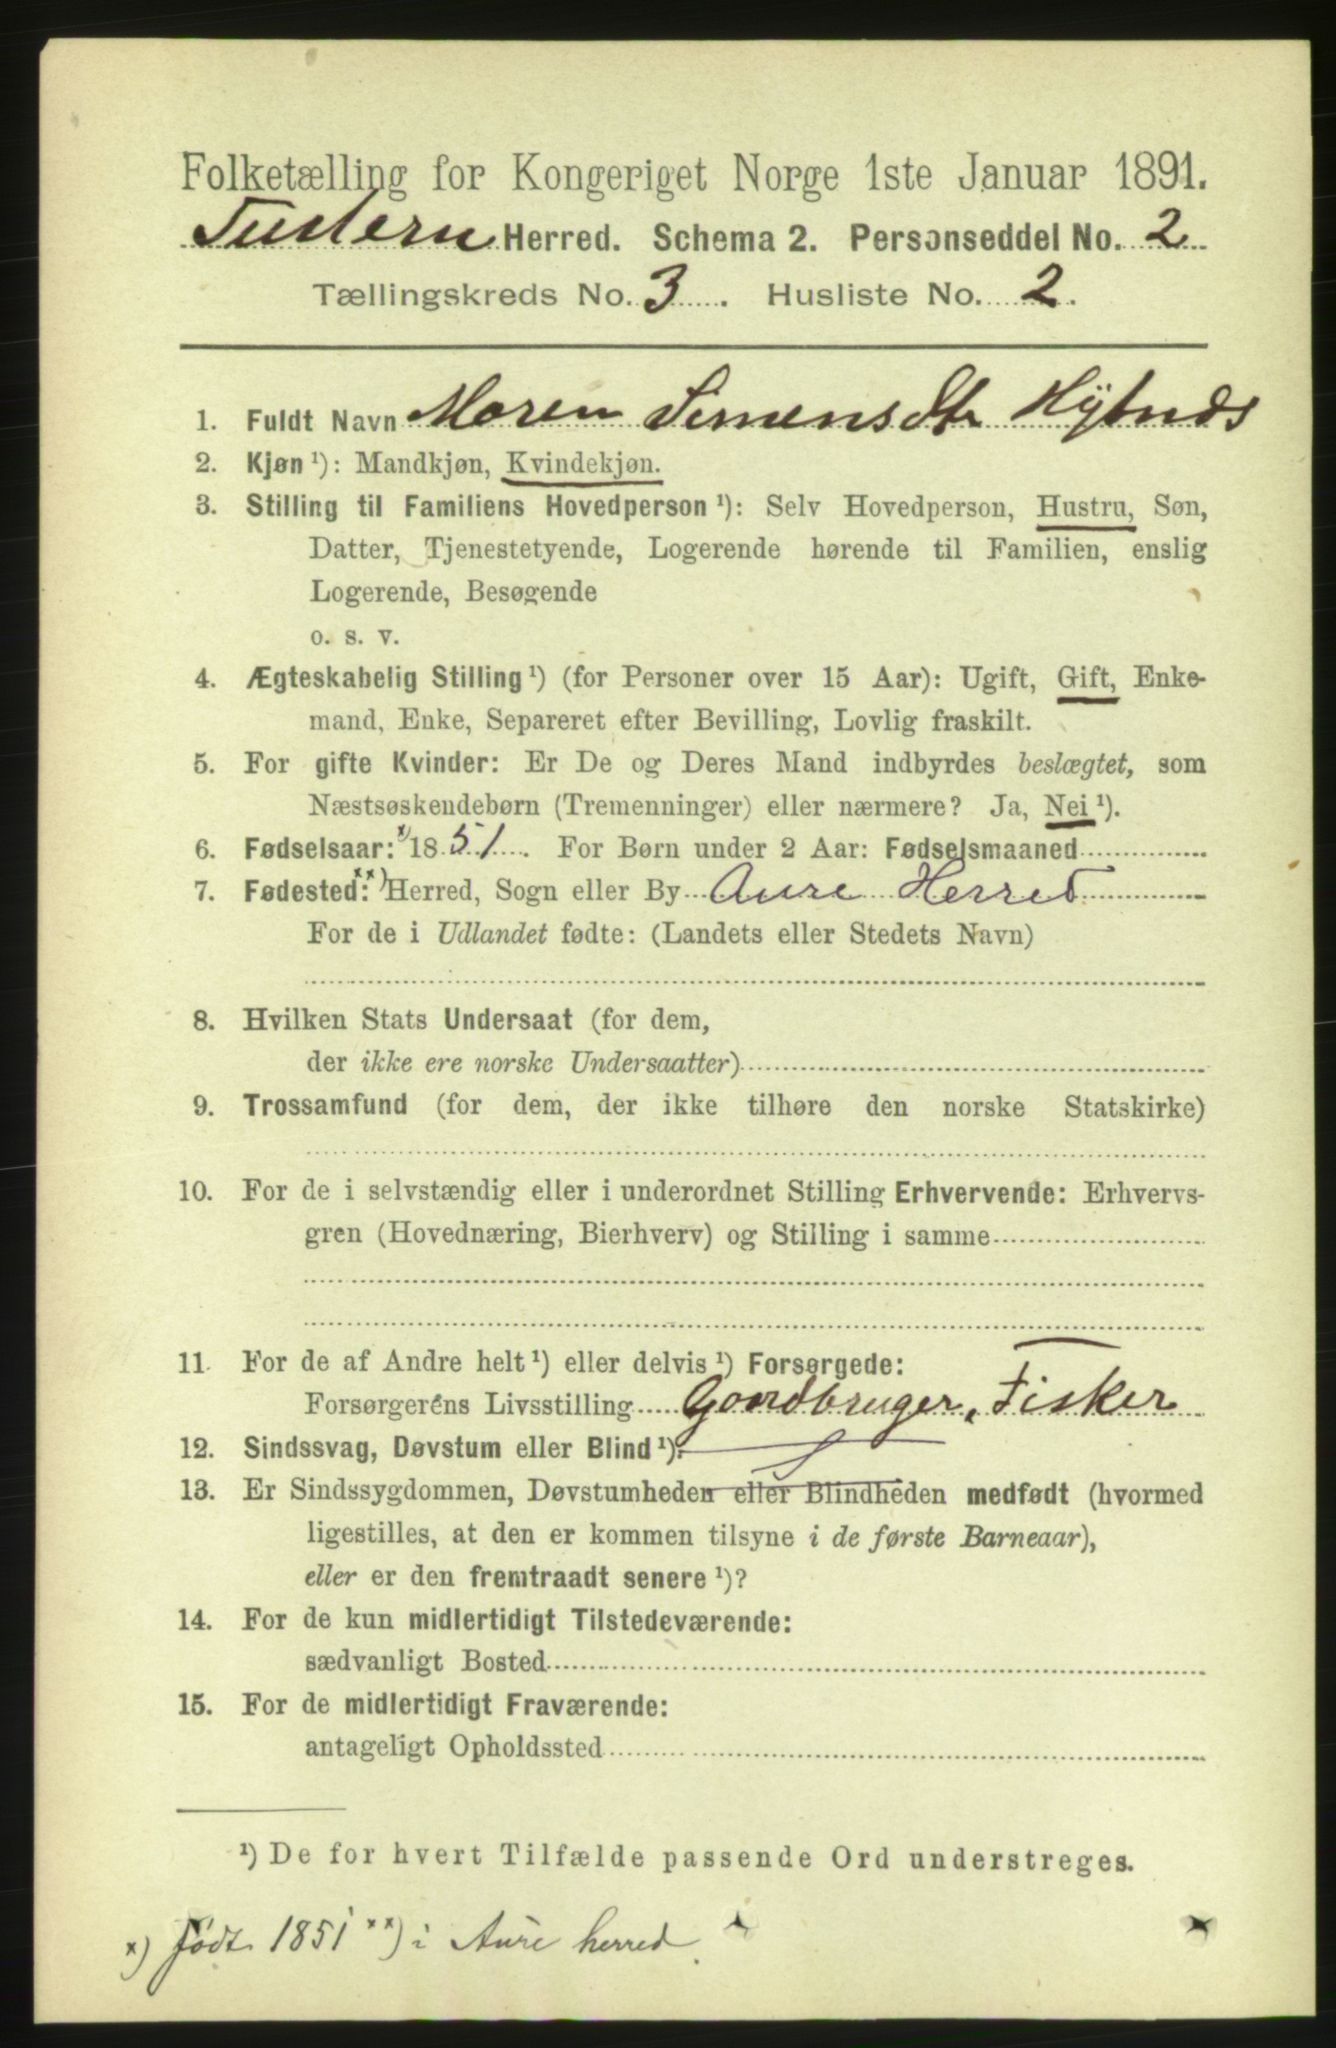 Folketælling for Kongeriget Norge 1ste Januar 1891.
Tustern Herred. Schema 2. Personseddel No. 2
Tællingskreds No. 3. Husliste No. 2.
1. Fuldt Navn Maren Simensdtr
2. Kjøn ¹): Mandkjøn, Kvindekjøn.
3. Stilling til Familiens Hovedperson ¹): Selv Hovedperson, Hustru, Søn,
Datter, Tjenestetyende, Logerende hørende til Familien, enslig
Logerende, Besøgende
o. s. v.
4. Ægteskabelig Stilling ¹) (for Personer over 15 Aar): Ugift, Gift, Enke-
mand, Enke, Separeret efter Bevilling, Lovlig fraskilt.
5. For gifte Kvinder: Er De og Deres Mand indbyrdes beslægtet, som
Næstsøskendebørn (Tremenninger) eller nærmere? Ja, Nei ¹).
6. Fødselsaar: x) 1851. For Børn under 2 Aar: Fødselsmaaned
7. Fødested: xx) Herred, Sogn eller By Aure Herred
For de i Udlandet fødte: (Landets eller Stedets Navn)
8. Hvilken Stats Undersaat (for dem,
der ikke ere norske Undersaatter)
9. Trossamfund (for dem, der ikke tilhøre den norske Statskirke)
10. For de i selvstændig eller i underordnet Stilling Erhvervende: Erhvervs-
gren (Hovednæring, Bierhverv) og Stilling i samme
11. For de af Andre helt ¹) eller delvis ¹) Forsørgede:
Forsørgerens Livsstilling Gaardbruger, Fisker
12. Sindssvag, Døvstum eller Blind ¹).
13. Er Sindssygdommen, Døvstumheden eller Blindheden medfødt (hvormed
ligestilles, at den er kommen tilsyne i de første Barneaar),
eller er den fremtraadt senere ¹)?
14. For de kun midlertidigt Tilstedeværende:
sædvanligt Bosted
15. For de midlertidigt Fraværende:
antageligt Opholdssted
¹) De for hvert Tilfælde passende Ord understreges.
x) født 1851 xx) i Aure herred.